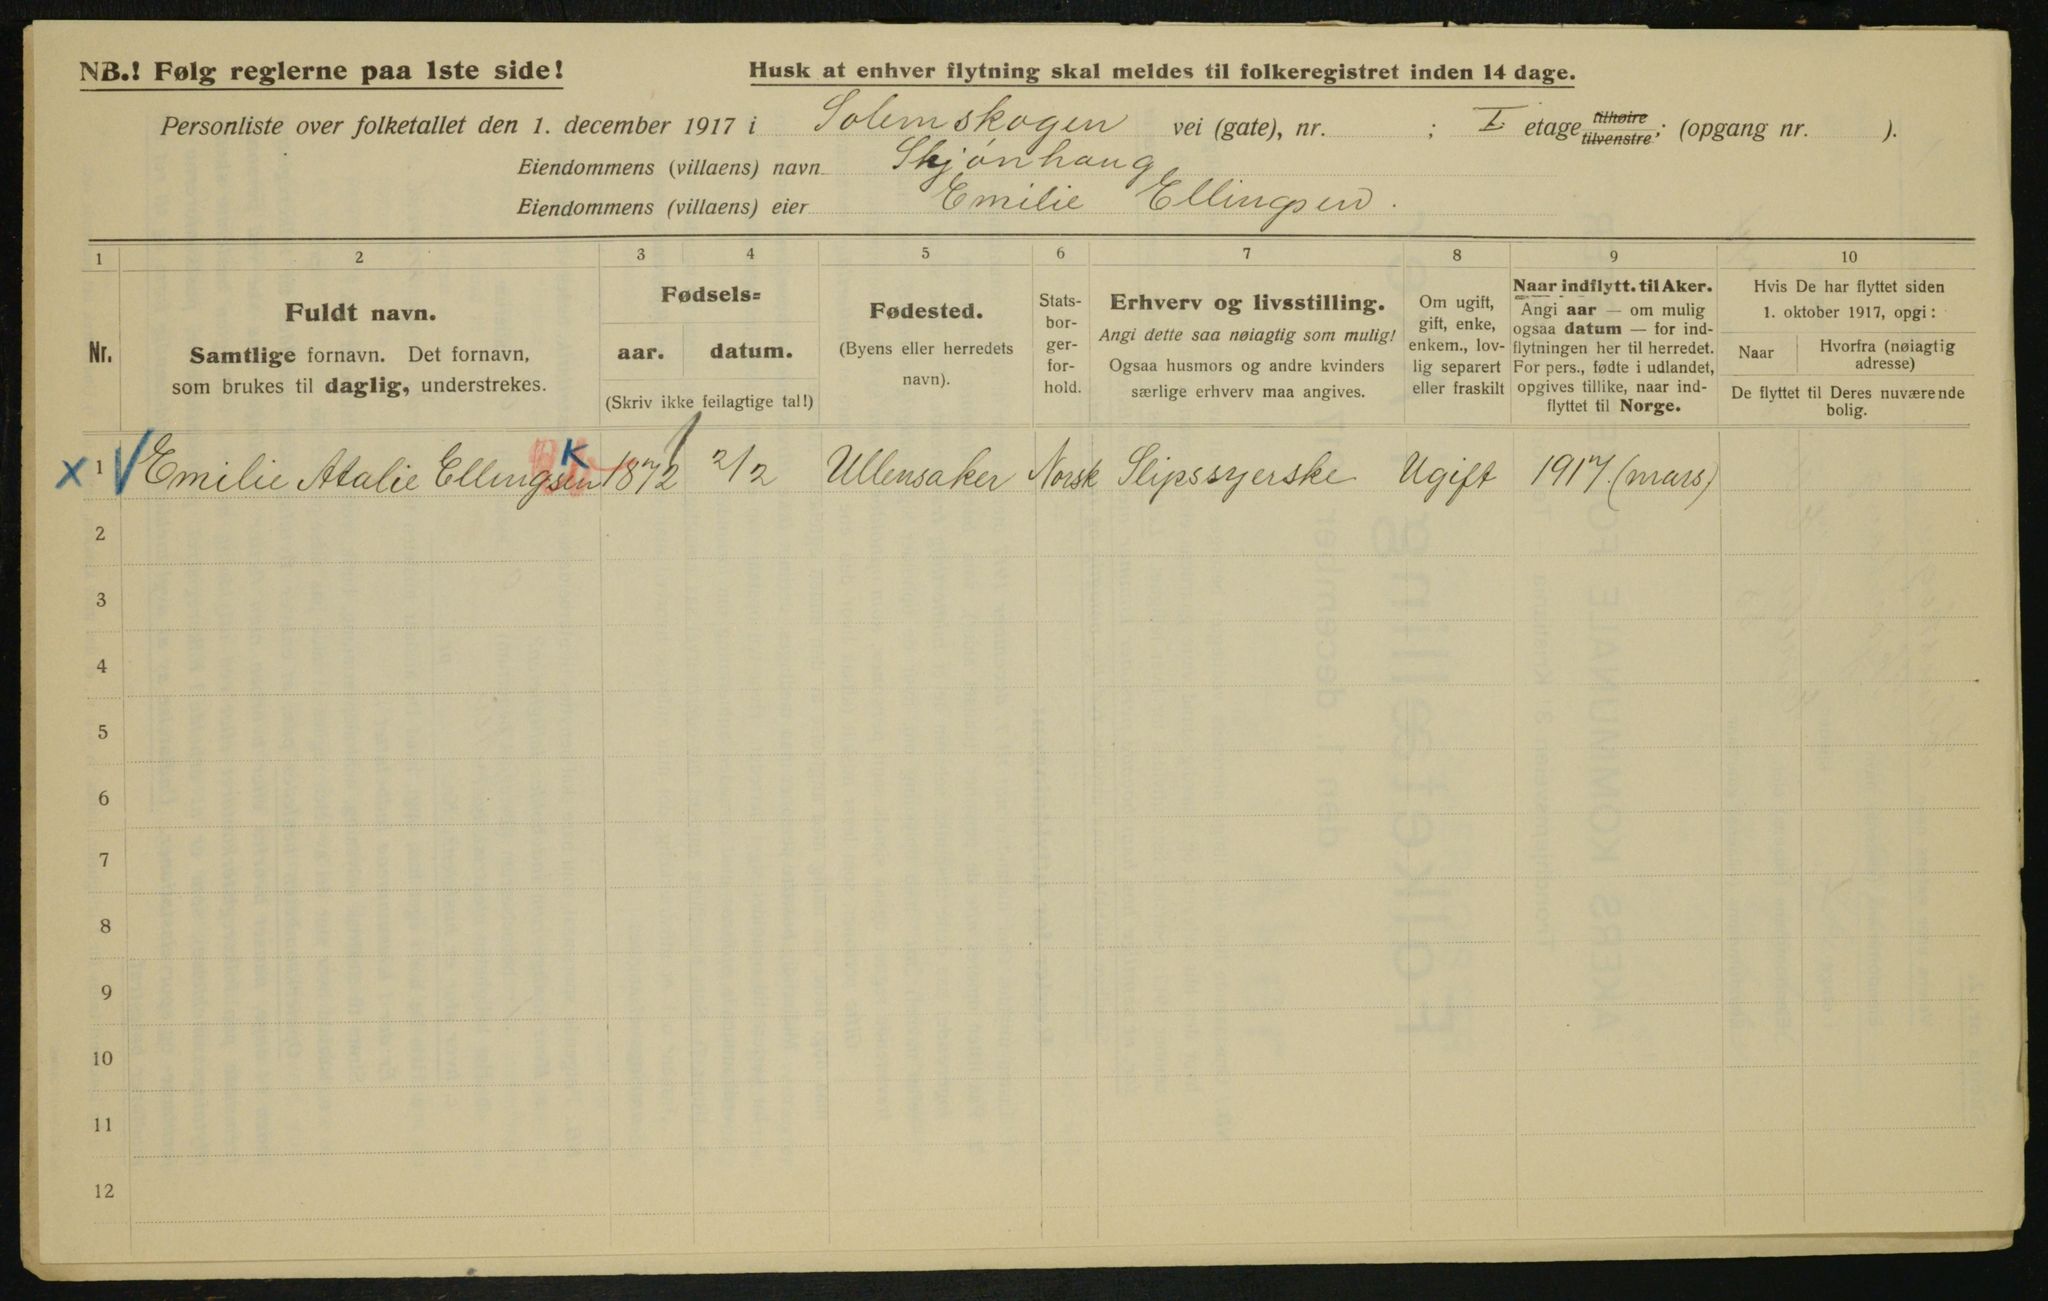 NB.! Følg reglerne paa 1ste side!
Husk at enhver flytning skal meldes til folkeregistret inden 14 dage.
Personliste over folketallet den 1. december 1917 i Solemskogen vei (gate), nr. ; I etage tilhøire tilvenstre; (opgang nr. ).
Eiendommens (villaens) navn Skjønhaug
Eiendommens (villaens) eier Emilie Ellingsen.
1 2 3 4 5 6 7 8 9 10
Nr.
Fuldt navn.
Samtlige fornavn. Det fornavn,
som brukes til daglig, understrekes.
Fødsels=
aar. datum.
(Skriv ikke feilagtige tal!)
Fødested.
(Byens eller herredets
navn).
Stats-
bor-
ger-
for-
hold.
Erhverv og livsstilling.
Angi dette saa nøiagtig som mulig!
Ogsaa husmors og andre kvinders
særlige erhverv maa angives.
Om ugift,
gift, enke,
enkem., lov-
lig separert
eller fraskilt
Naar indflytt. til Aker.
Angi aar — om mulig
ogsaa datum — for ind-
flytningen her til herredet.
For pers., fødte i udlandet,
opgives tillike, naar ind-
flyttet til Norge.
Hvis De har flyttet siden
1. oktober 1917, opgi:
Naar
Hvorfra (nøiagtig
adresse)
De flyttet til Deres nuværende
bolig.
X 1 Emilie Atalie Ellingsen K 1872 2/2 Ullensaker Norsk Slipssyerske Ugift 1917 (mars)
2
3
4
5
6
7
8
9
10
11
12